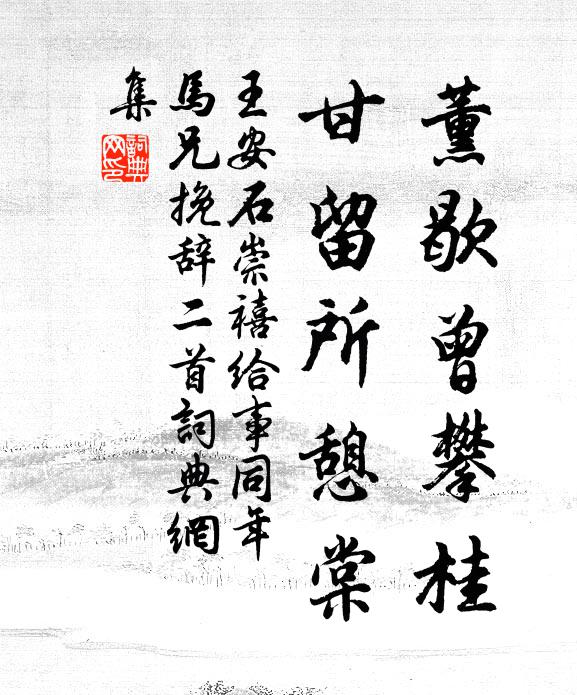 薰歇曾攀桂
甘留所憩棠
王安石崇禧给事同年
馬兄挽辞二首詞典網
集
詞典
网印